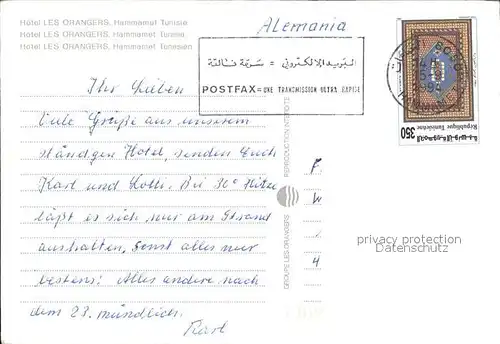 Hôtel LES ORANGERS, Hammamet Tunisie
Hotel LES ORANGERS, Hammamet Tunisia
Hotel LES ORANGERS, Hammamet Tunesien
Alemania
البريد الالكتروني = سرعة فائقة
POSTFAX = UNE TRANSMISSION ULTRA RAPIDE
350
République Tunisienne
الجمهورية التونسية
Ihr Lieben
Viele Grüße aus unserem
ständigen Hotel, senden Euch
Karl und Lotti. Bei 30° Hitze
läßt es sich nur am Strand
aushalten, sonst alles nur
bestens! Alles andere nach
dem 23. mündlich.
Karl
REPRODUCTION INTERDITE
GROUPE LES ORANGERS
F.
W
4
privacy protection
Datenschutz